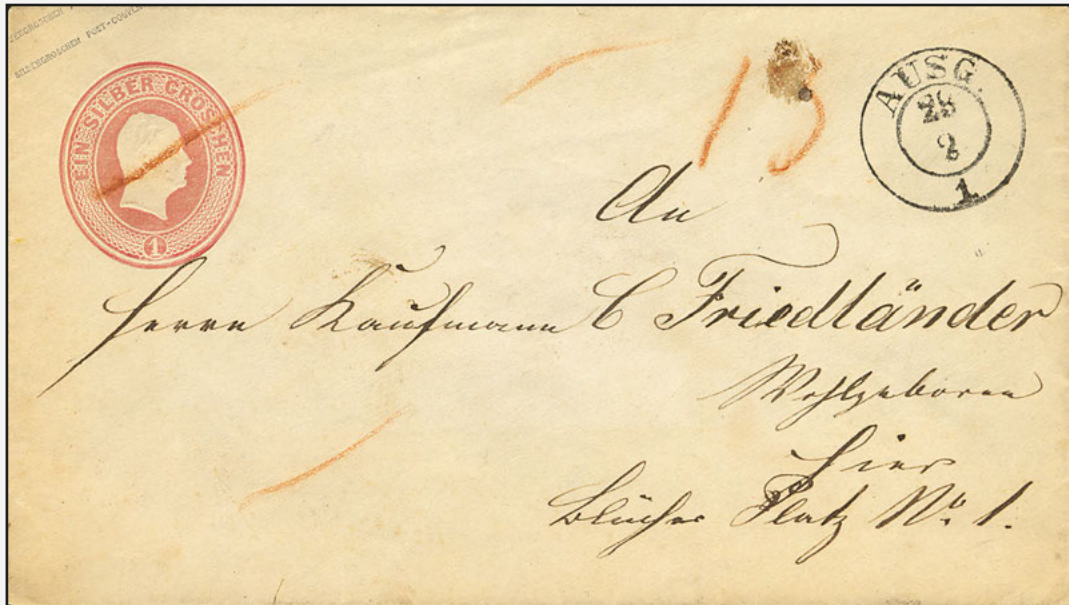 POST-COUVERT
EIN SILBER GROSCHEN
1
13
AUSG.
28
2
1
An
Herrn Kaufmann C Friedländer
Wohlgeboren
hier
Blücher Platz No. 1.